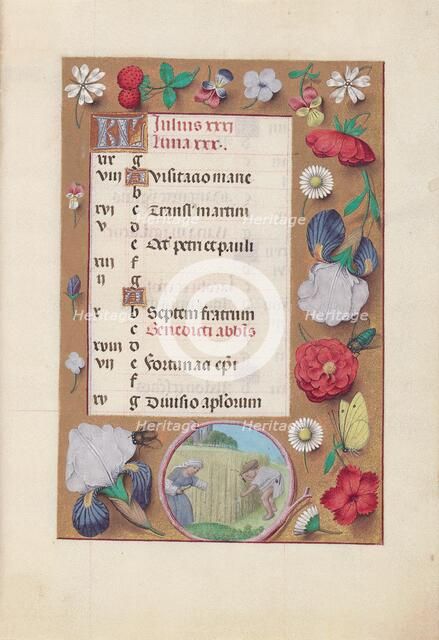 KL Julius xxxi
luna xxx.
xix g
viii A Visitacio marie
b
xvi c Transl' martini
v d
e Oct' petri et pauli
xiii f
ii g
A
x b Septem fratrum
c Benedicti abb̄is
xviii d
vii e Fortunati ep̄i
f
xv g Divisio ap̄lorum
Heritage
Heritage
Heritage
Heritage
Heritage
Heritage
Heritage
Heritage